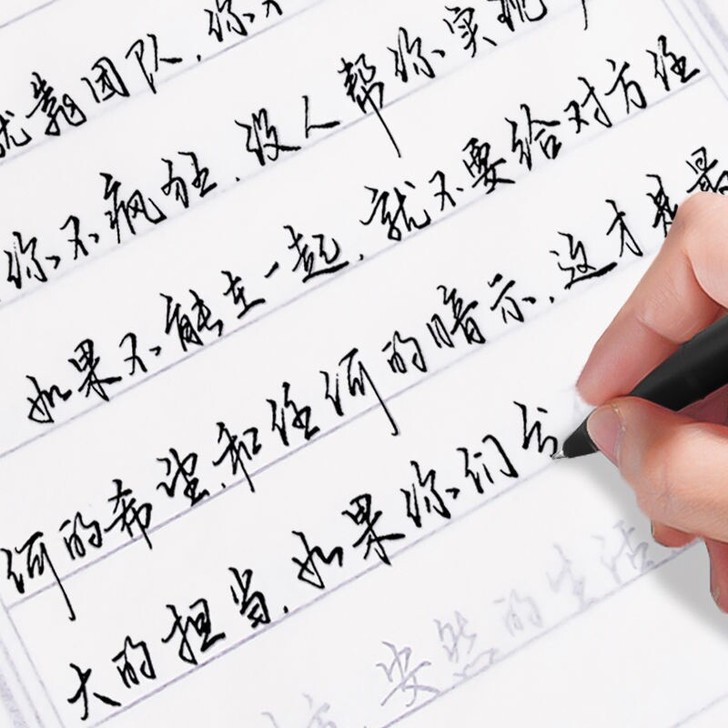 就靠团队,你不
你不疯狂,没人帮你实现
如果不能在一起,就不要给对方任
何的希望和任何的暗示,这才是最
大的担当,如果你们分
安然的生活